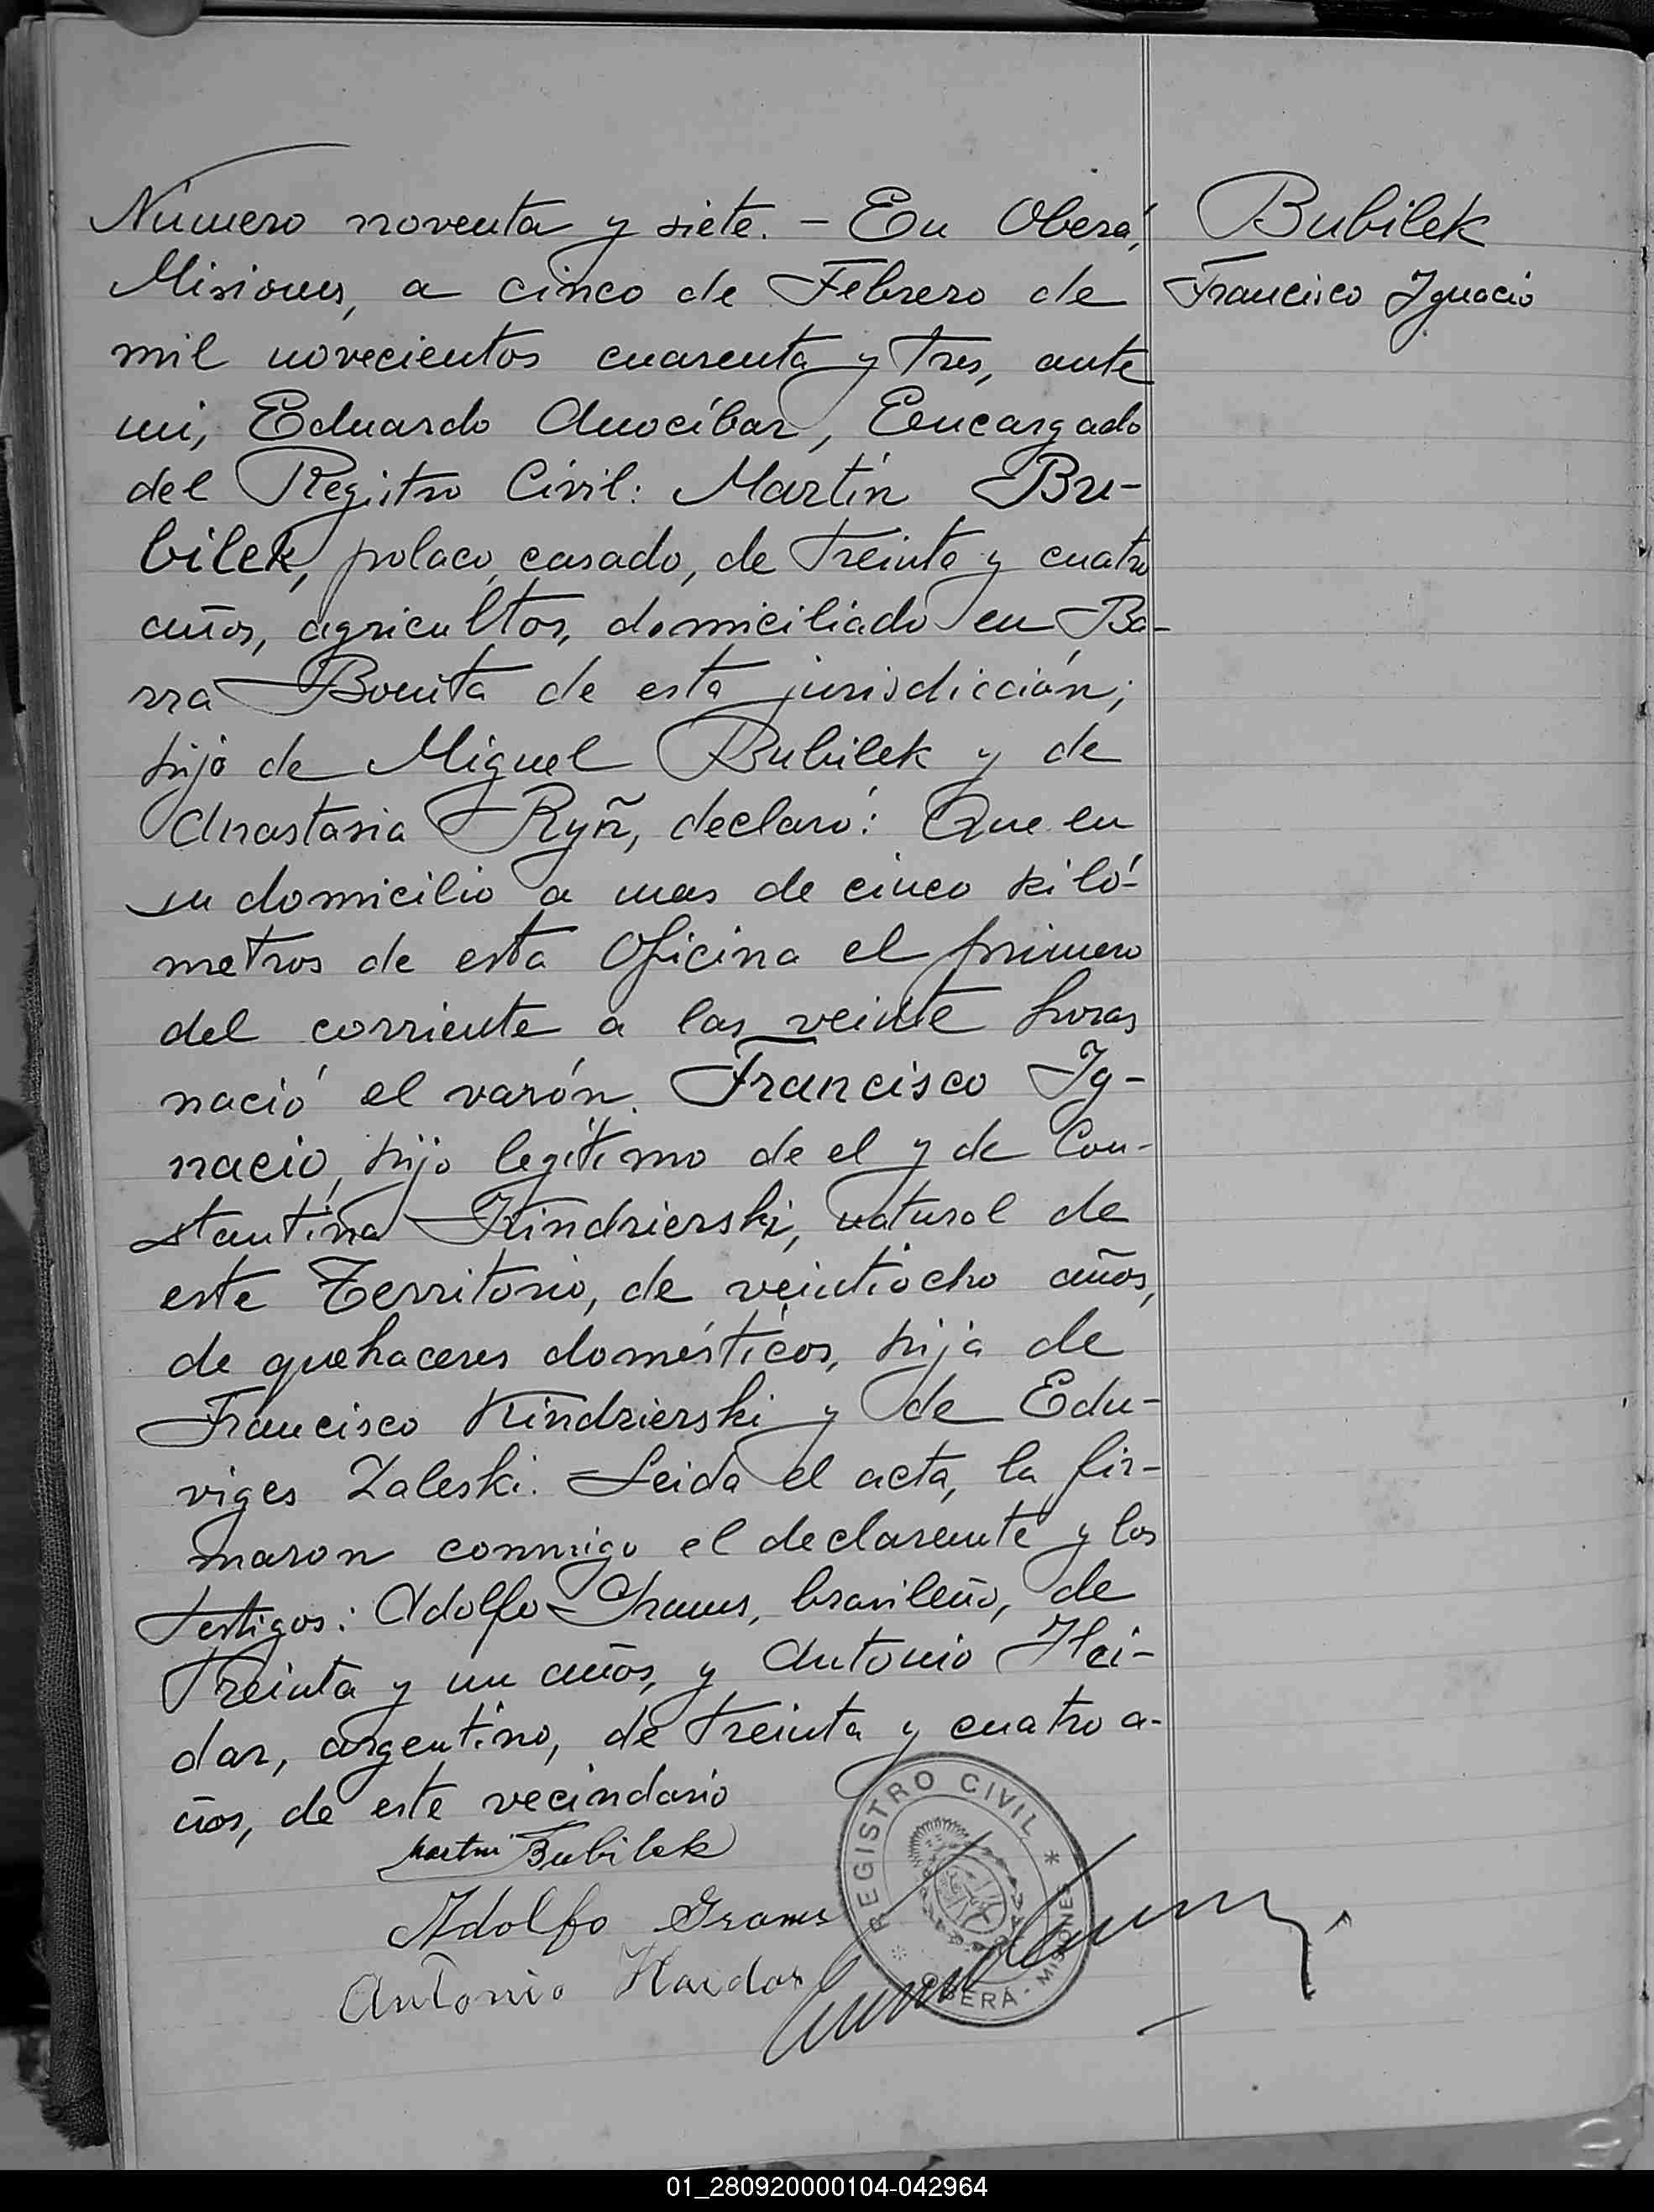 Número noventa y siete. - En Oberá,
Misiones, a cinco de Febrero de
mil novecientos cuarenta y tres, ante
mi, Eduardo Anocíbar, Encargado
del Registro Civil: Martín Bu-
bilek, polaco, casado, de treinta y cuatro
años, agricultor, domiciliado en Ba-
rra Bonita de esta jurisdicción;
hijo de Miguel Bubilek y de
Anastasia Ryñ, declaró: Que en
su domicilio a mas de cinco kiló-
metros de esta Oficina el primero
del corriente a las veinte horas
nació el varón. Francisco Ig-
nacio, hijo legítimo de el y de Con-
stantina Kindzierski, natural de
este Territorio, de veintiocho años,
de quehaceres domésticos, hija de
Francisco Kindzierski y de Edu-
viges Zaleski. Leida el acta, la fir-
maron conmigo el declarante y los
testigos: Adolfo Grams, brasileño, de
treinta y un años, y Antonio Hei-
dar, argentino, de treinta y cuatro a-
ños, de este vecindario
Martin Bubilek
Adolfo Grams
Antonio Haidar
Bubilek
Francisco Ignacio
REGISTRO CIVIL
OBERÁ - MISIONES
01_280920000104-042964